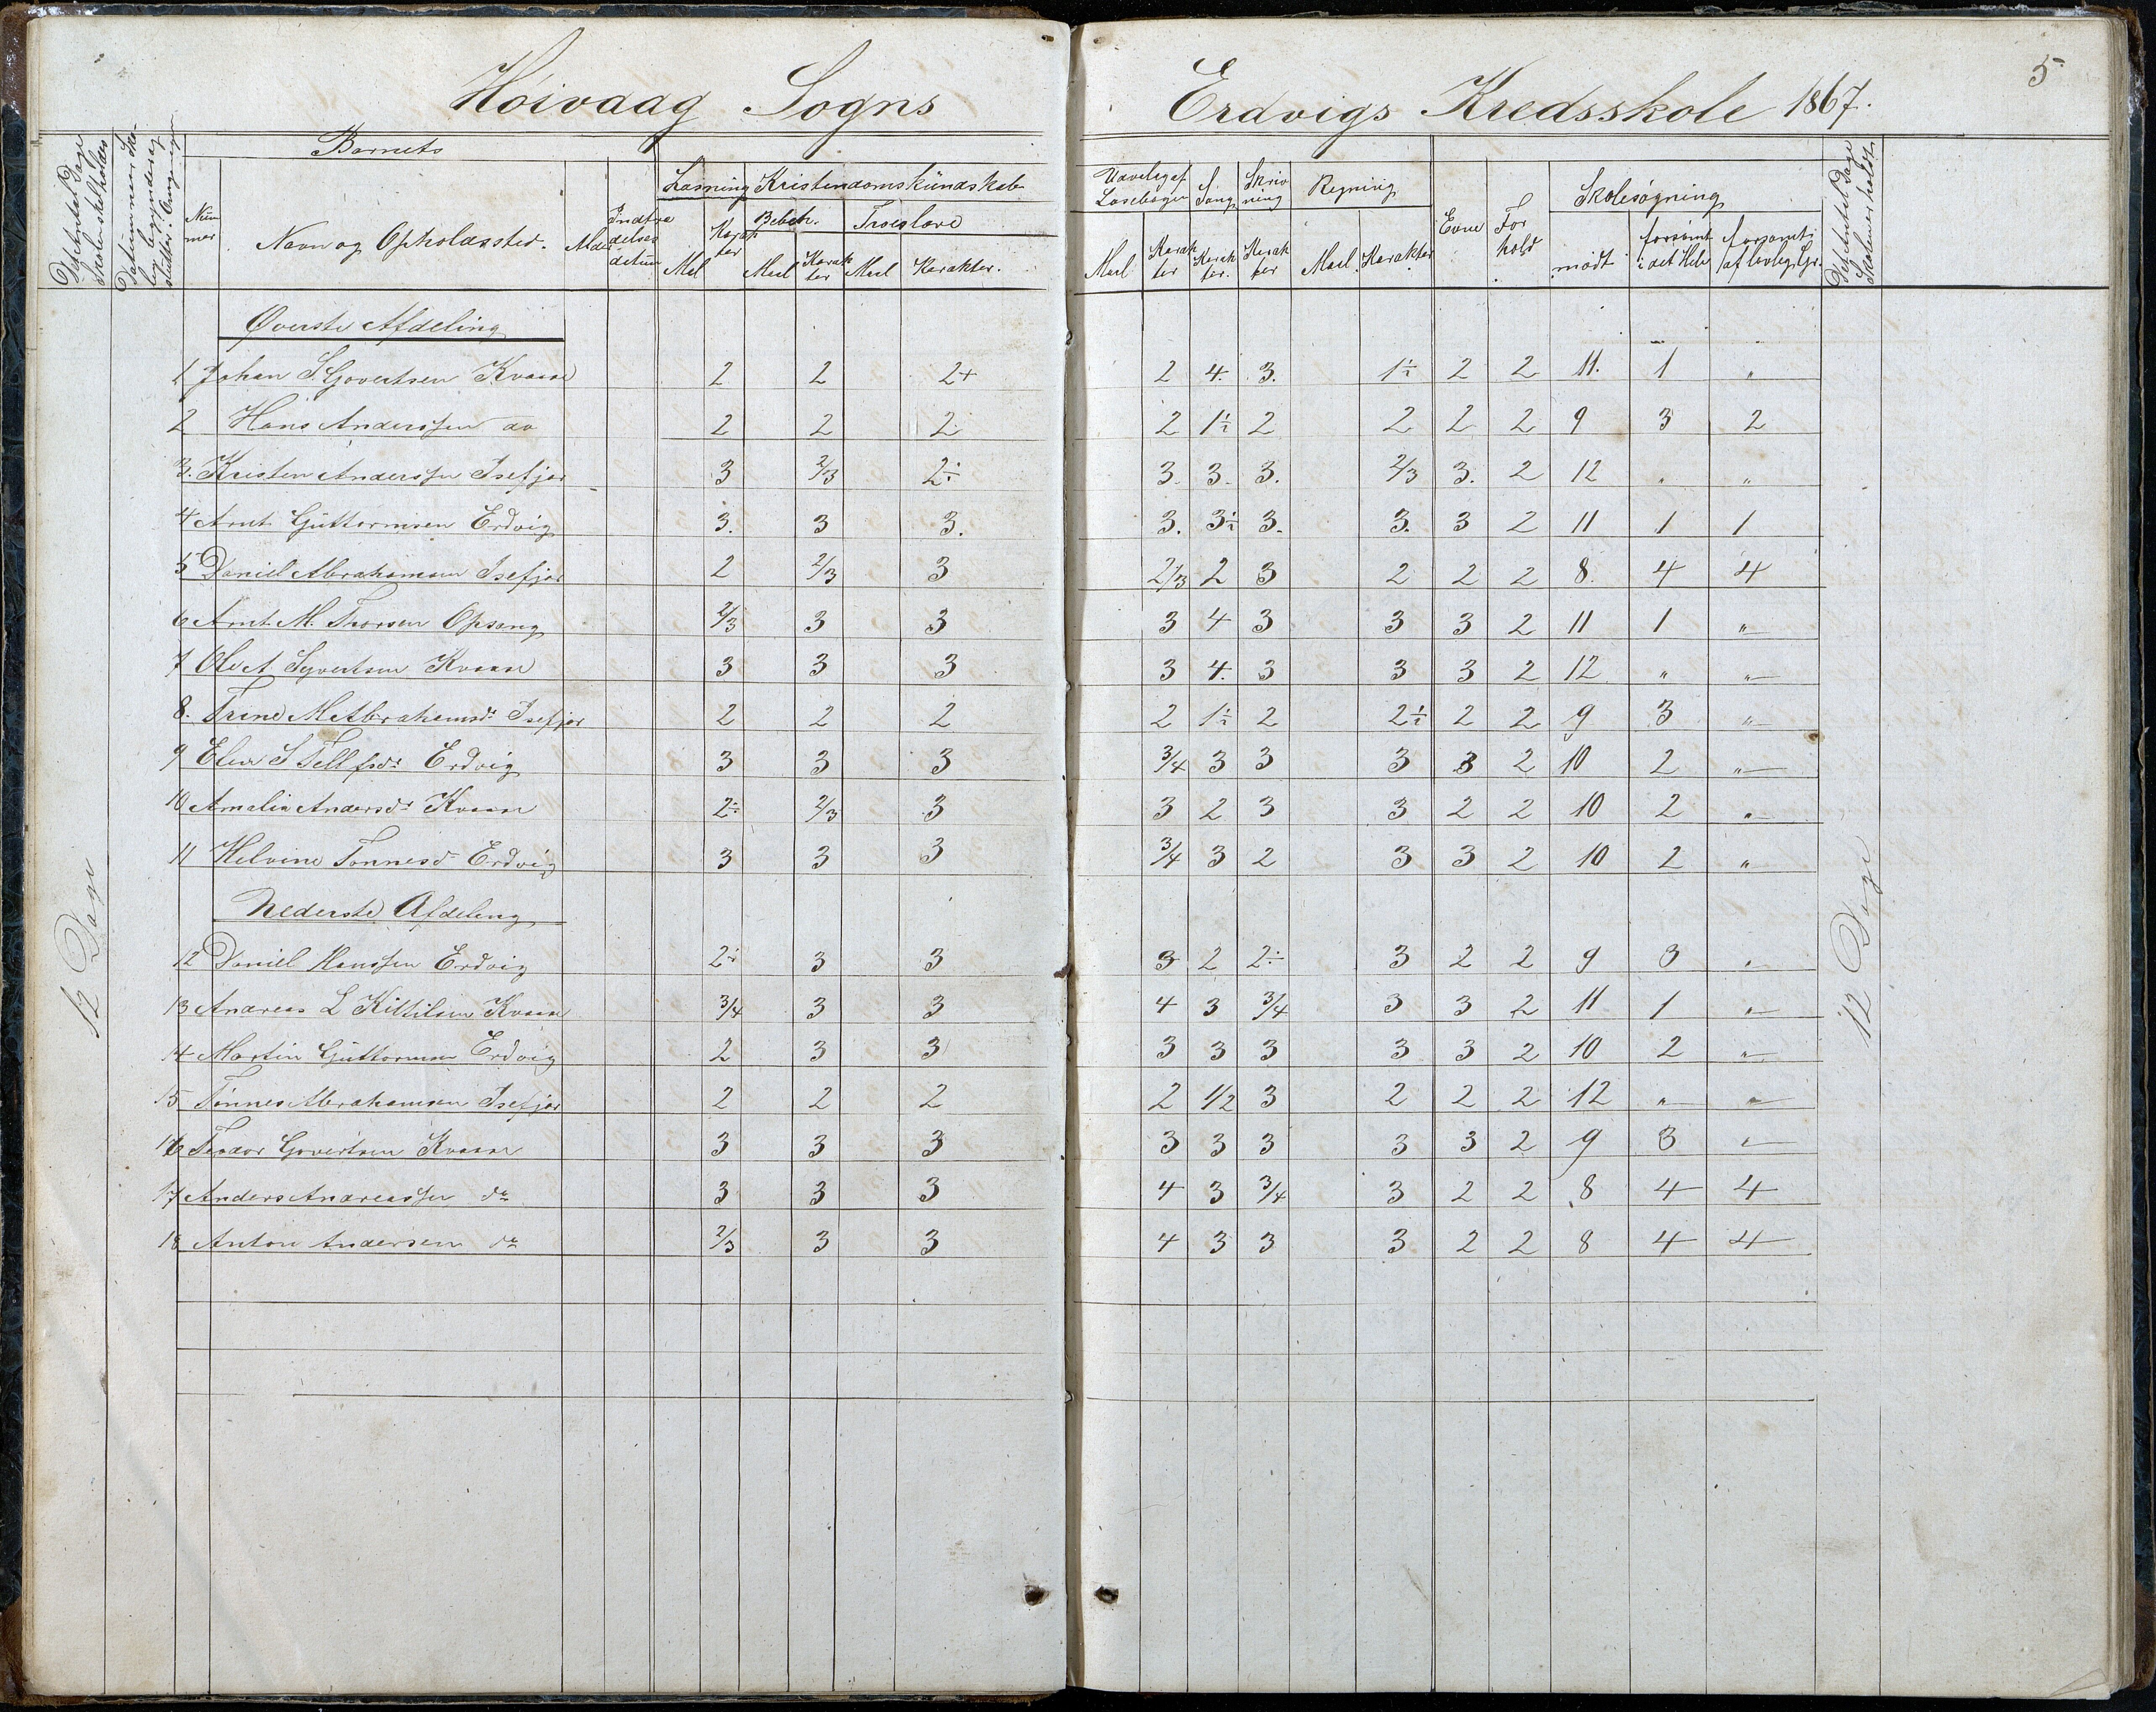 Høivaag Sogns
Erdvigs Kredsskole 1867.
5
Det Antal Dage Skolen skal holdes
Datum naar Skolen begynder og slutter.
Barnets
Nummer
Navn og Opholdssted.
Alder
Indtrædelses detum
Læsning
Maal
Karakter
Kristendomskundskab
Bibelh.
Maal
Karakter
Troeslære
Maal
Karakter.
Udvalg af Læsebogen
Maal
Karakter
Sang
Karakter.
Skrivning
Karakter
Regning
Maal
Karakter
Evne
Forhold
Skolesøgning
mødt
forsømt i det Hele
forsømt af lovlig Gr.
Det Antal Dage Skolen er holdt
12 Dage
Øverste Afdeling
1 Johan S. Govertsen Kvaase 2 2 2+ 2 4. 3. 1÷ 2 2 11. 1 "
2 Hans Anderssen do 2 2 2 2 1÷ 2 2 2 2 9 3 2
3. Kristen Anderssen Isefjær 3 2/3 2÷ 3. 3. 3. 2/3 3. 2 12 " "
4 Arnt Guttormsen Erdvig 3. 3 3. 3. 3÷ 3. 3. 3 2 11 1 1
5 Daniel Abrahamsen Isefjær 2 2/3 3 2/3 2 3 2 2 2 8. 4 4
6 Arnt M. Thorsen Opsang 2/3 3 3 3 4 3 3 3 2 11 1 "
7 Ole A Syvertsen Kvaase 3 3 3 3 4. 3 3 3 2 12 " "
8. Trine M Abrahamsdr Isefjær 2 2 2 2 1÷ 2 2÷ 2 2 9 3 "
9 Elen S Tellfsdr Erdvig 3 3 3 3/4 3 3 3 3 2 10 2 "
10 Amalia Andersdr Kvaase 2÷ 2/3 3 3 2 3 3 2 2 10 2 "
11 Helvine Tønnesd Erdvig 3 3 3 3/4 3 2 3 3 2 10 2 "
Nederste Afdeling
12 Daniel Hanssen Erdvig 2÷ 3 3 3 2 2÷ 3 2 2 9 3 "
13 Andreas L Kittilsen Kvaase 3/4 3 3 4 3 3/4 3 3 2 11 1 "
14 Martin Guttormsen Erdvig 2 3 3 3 3 3 3 3 2 10 2 "
15 Tønnes Abrahamsen Isefjær 2 2 2 2 1/2 3 2 2 2 12 " "
16 Teodor Govertsen Kvaase 3 3 3 3 3 3 3 3 2 9 3 "
17 Anders Andreassen do 3 3 3 4 3 3/4 3 2 2 8 4 4
18 Anton Andersen do 2/3 3 3 4 3 3 3 2 2 8 4 4
12 Dage